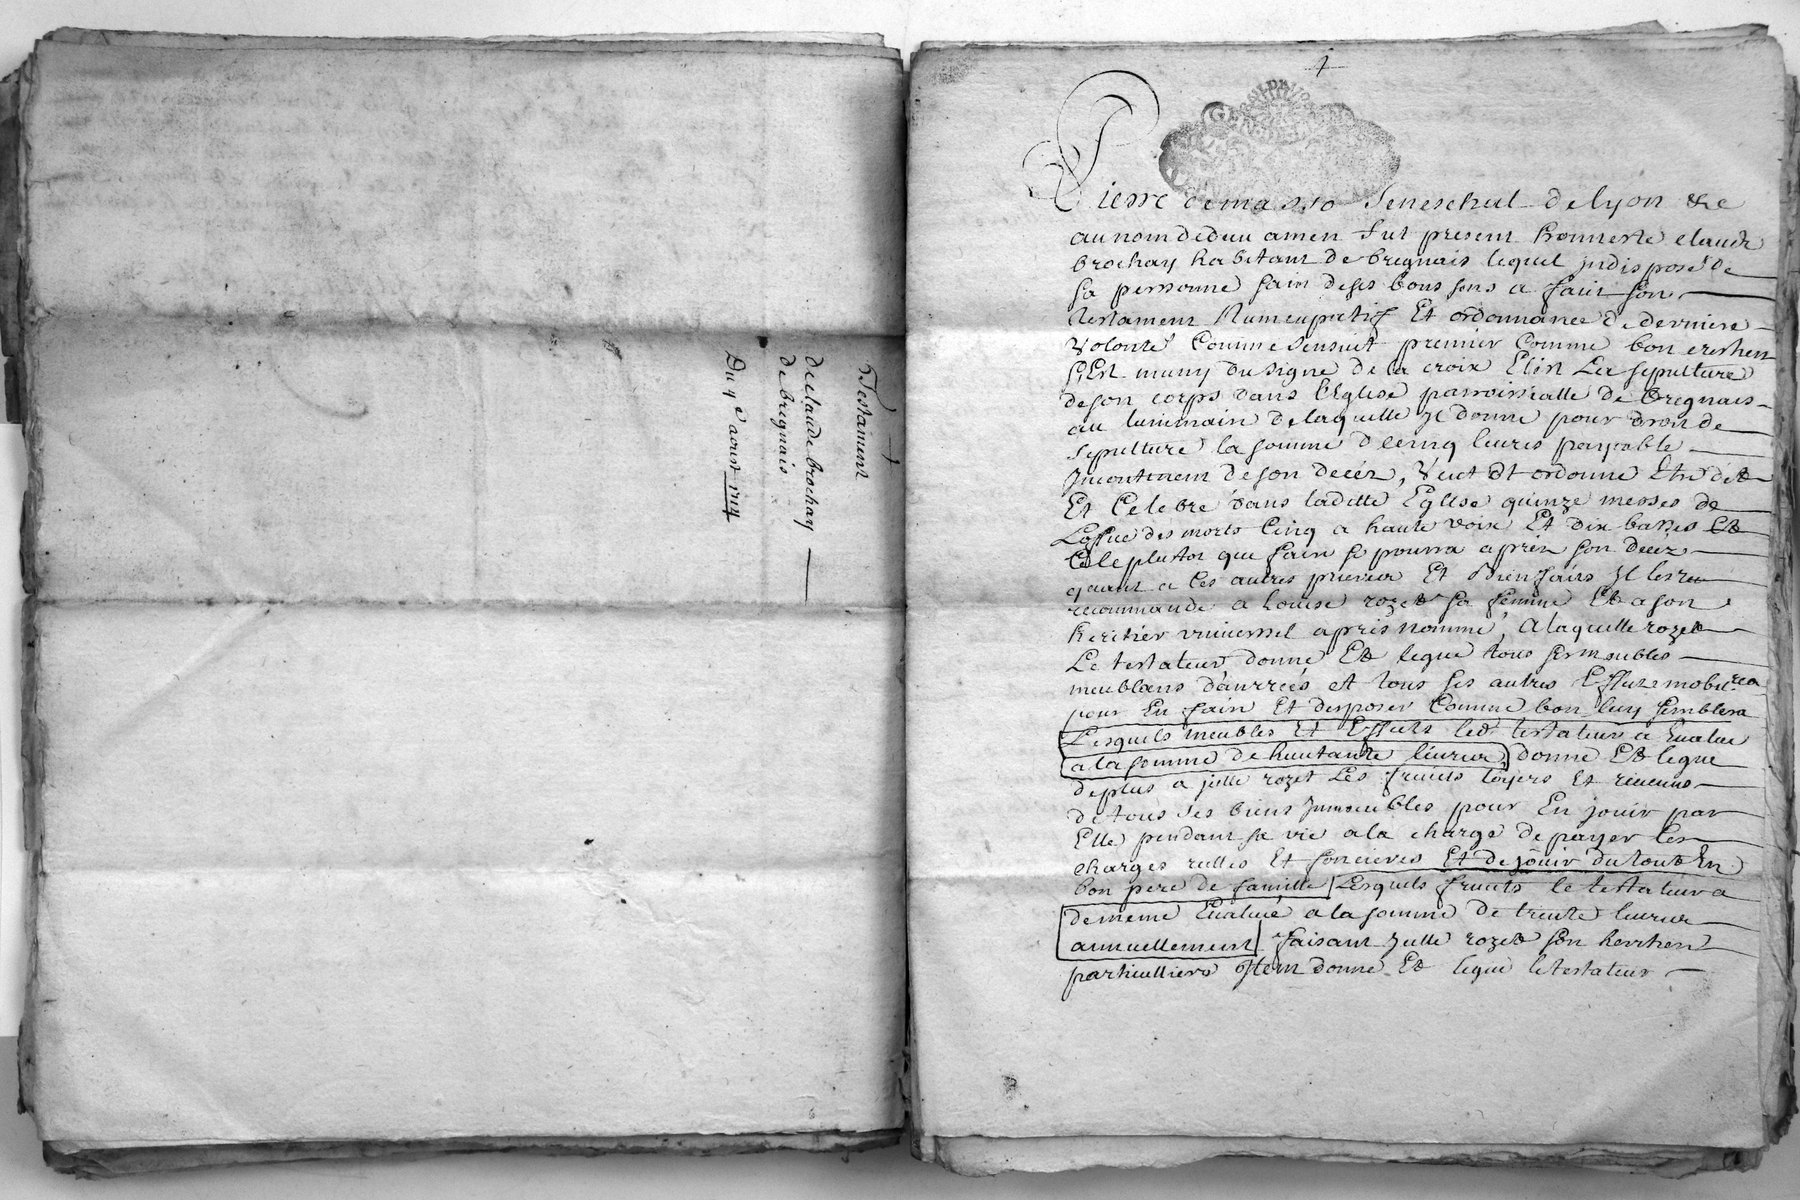 Testament
de claude brochay
de brignais
Du 4e aoust 1714
Pierre demasso seneschal de lyon &c
au nom de dieu amen fut present honneste claude
brochay habitant de brignais lequel jndisposé de
sa personne sain de ses bons sens a fait son
testament Nuncupatif Et ordonnance de derniere
volonté Comme sensuit premier comme bon crestien
sEst muny du signe de la croix Elisn La sepulture
de son corps dans l'Eglise parroissialle de brignais
au luminaire de laquelle jl donne pour droit de
sepulture la somme de cinq liures payable
jncontinent de son decéz, Veut Et ordonne Etre dit
Et Celebré dans laditte Eglise quinze messes de
Loffice des morts Cinq a haute voix Et dix basses Et
Ce le plustot que faire se pourra apréz son decéz
quant a ses autres prieres Et Bienfaits jl les
recommande a Louise rozet sa femme Et a son
heritier vniuersel aprés nommé, a laquelle rozet
Le testateur donne Et legue tous ses meubles
meublans danrrées et tous ses autres Effets mobil.res
pour En faire Et disposer Comme bon luy semblera
Lesquels meubles Et Effets led. testateur a Eualué
a la somme de huictante liures, donne Et legue
deplus a jelle rozet Les fruits loyers et reuenus
de tous ses biens jmmeubles pour En jouir par
Elle pendant sa vie a la charge de payer les
charges reelles Et foncieres Et de joüir du tout En
bon pere de famille Lesquels fruits le testateur a
de meme Eualué a la somme de trente liures
annuellement faisant jelle rozet son heritiere
particulliere Jtem donne Et legue le testateur